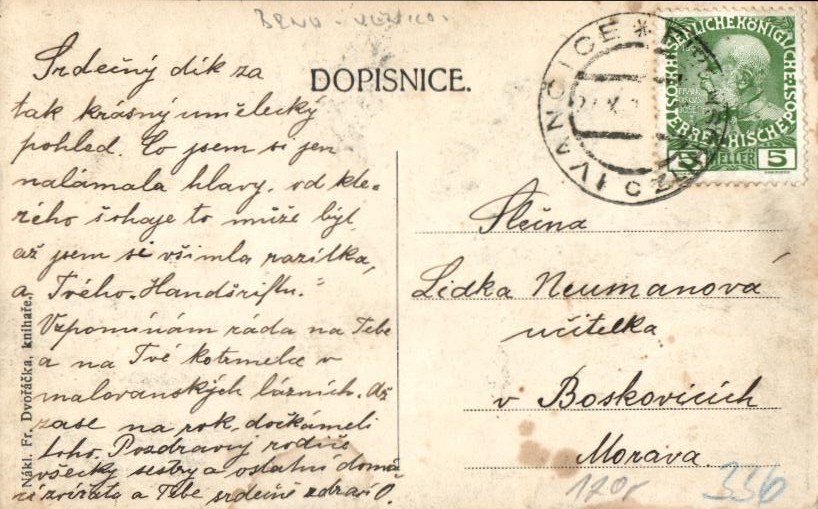 BRNO - 
Srdečný dík za
tak krásný umělecký
pohled. Co jsem si jen
nalámala hlavy, od kte-
rého šohaje to může být,
až jsem si všimla razítka,
a Tvého „Handšriftu."
Vzpomínám ráda na Tebe
a na Tvé kotrmelce v
malovanských lázních. Až
zase na rok, dočkámeli
toho. Pozdravuj rodiče
všecky sestry a ostatní domá
cí zvířata a Tebe srdečně zdraví O.
Nákl. Fr. Dvořáčka, knihaře.
DOPISNICE.
IVANČICE * EIBENSCHITZ
KAISERLICHE KÖNIGLICHE
ÖSTERREICHISCHE POST
FRANZ
JOSEF I
5 HELLER 5
Slečna
Lidka Neumanová
učitelka
v Boskovicích
Morava.
120,-
336